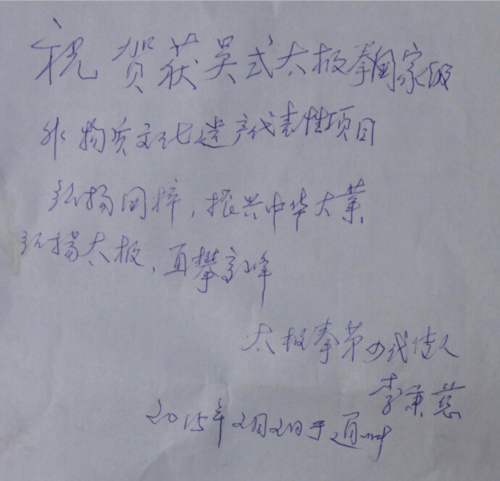 祝贺获吴式太极拳国家级
非物质文化遗产代表性项目
弘扬国粹，振兴中华大业
弘扬太极，直攀高峰
太极拳第四代传人
李秉慈
2015年2月2日于通州